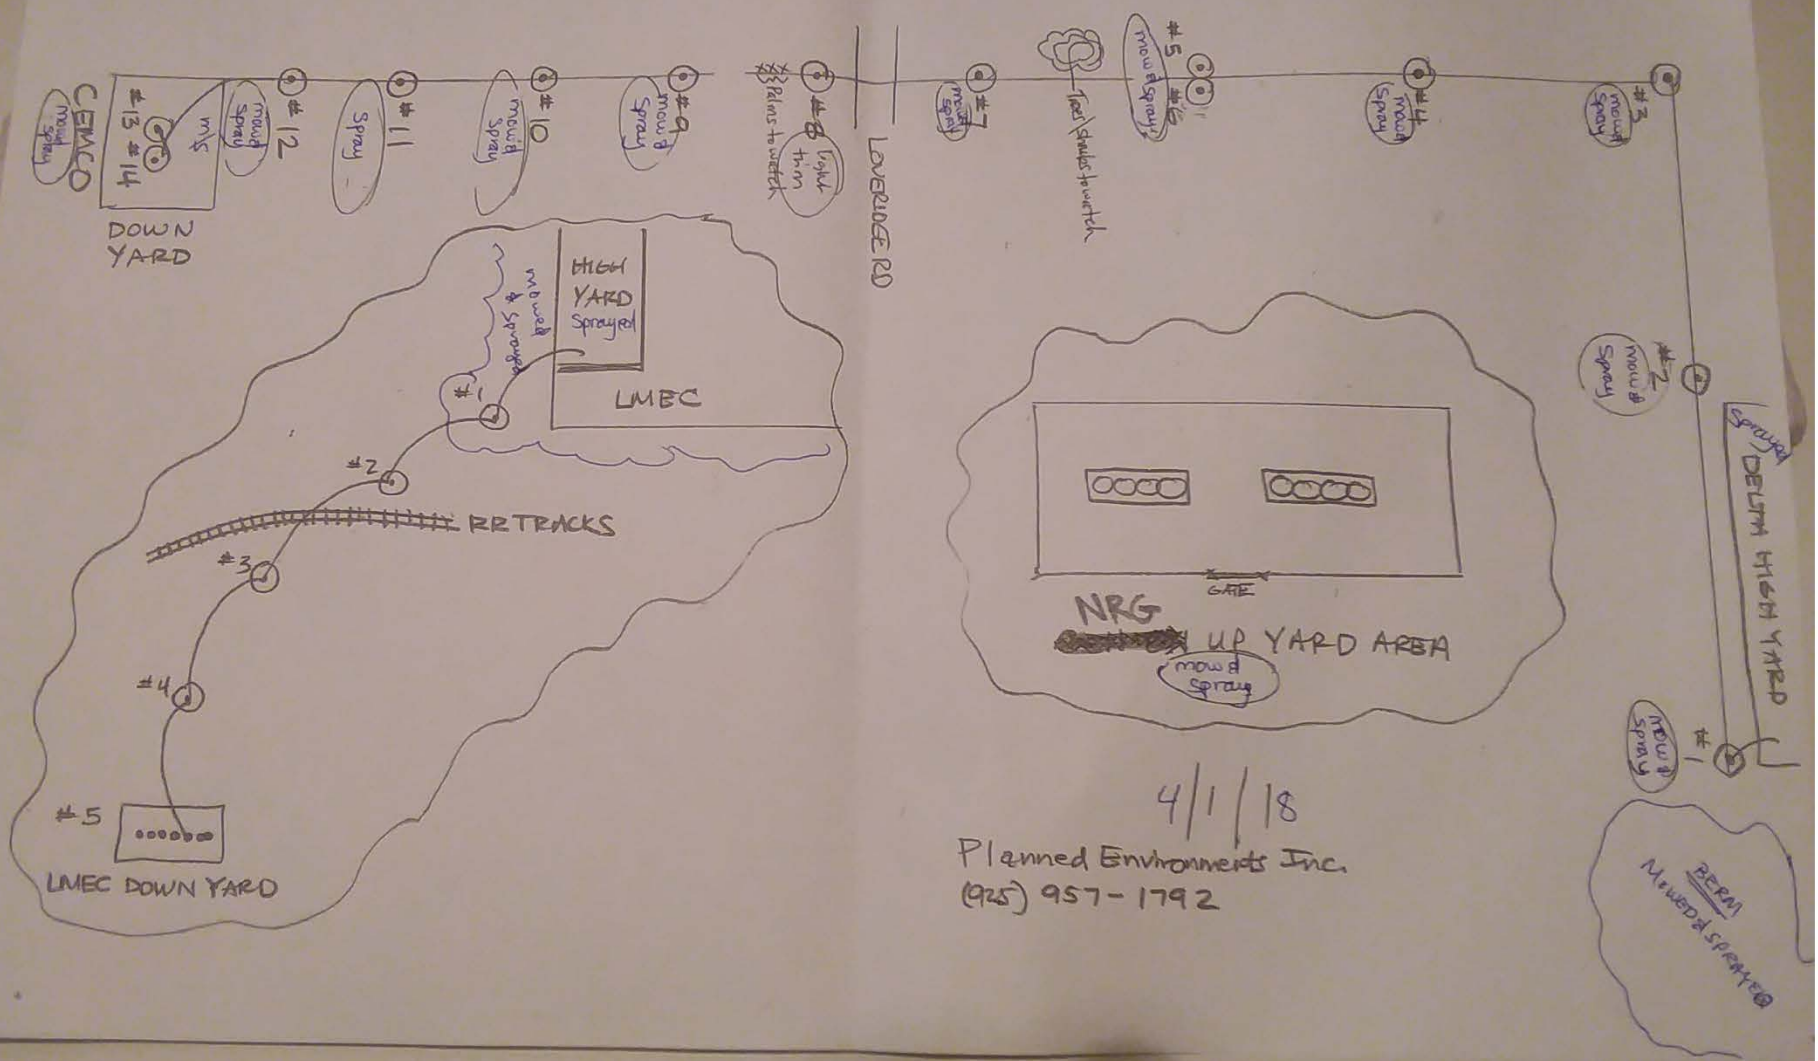 CEMCO
mow &
spray
#13 #14
m/s
DOWN
YARD
mow &
spray
#12
Spray
#11
mow &
Spray
#10
mow &
Spray
#9
Palms to watch
#8
light
thin
LOVERIDGE RD
#7
mow &
spray
Trees/shrubs to watch
#5
#6
mow & spray
#4
mow &
Spray
#3
mow &
Spray
#2
mow &
Spray
Sprayed
DELTA HIGH YARD
#1
mow &
spray
BERM
MOWED & SPRAYED
HIGH
YARD
Sprayed
mowed
& Sprayed
#1
LMEC
#2
RR TRACKS
#3
#4
#5
LMEC DOWN YARD
GATE
NRG
UP YARD AREA
mow &
spray
4/1/18
Planned Environments Inc.
(925) 957-1792